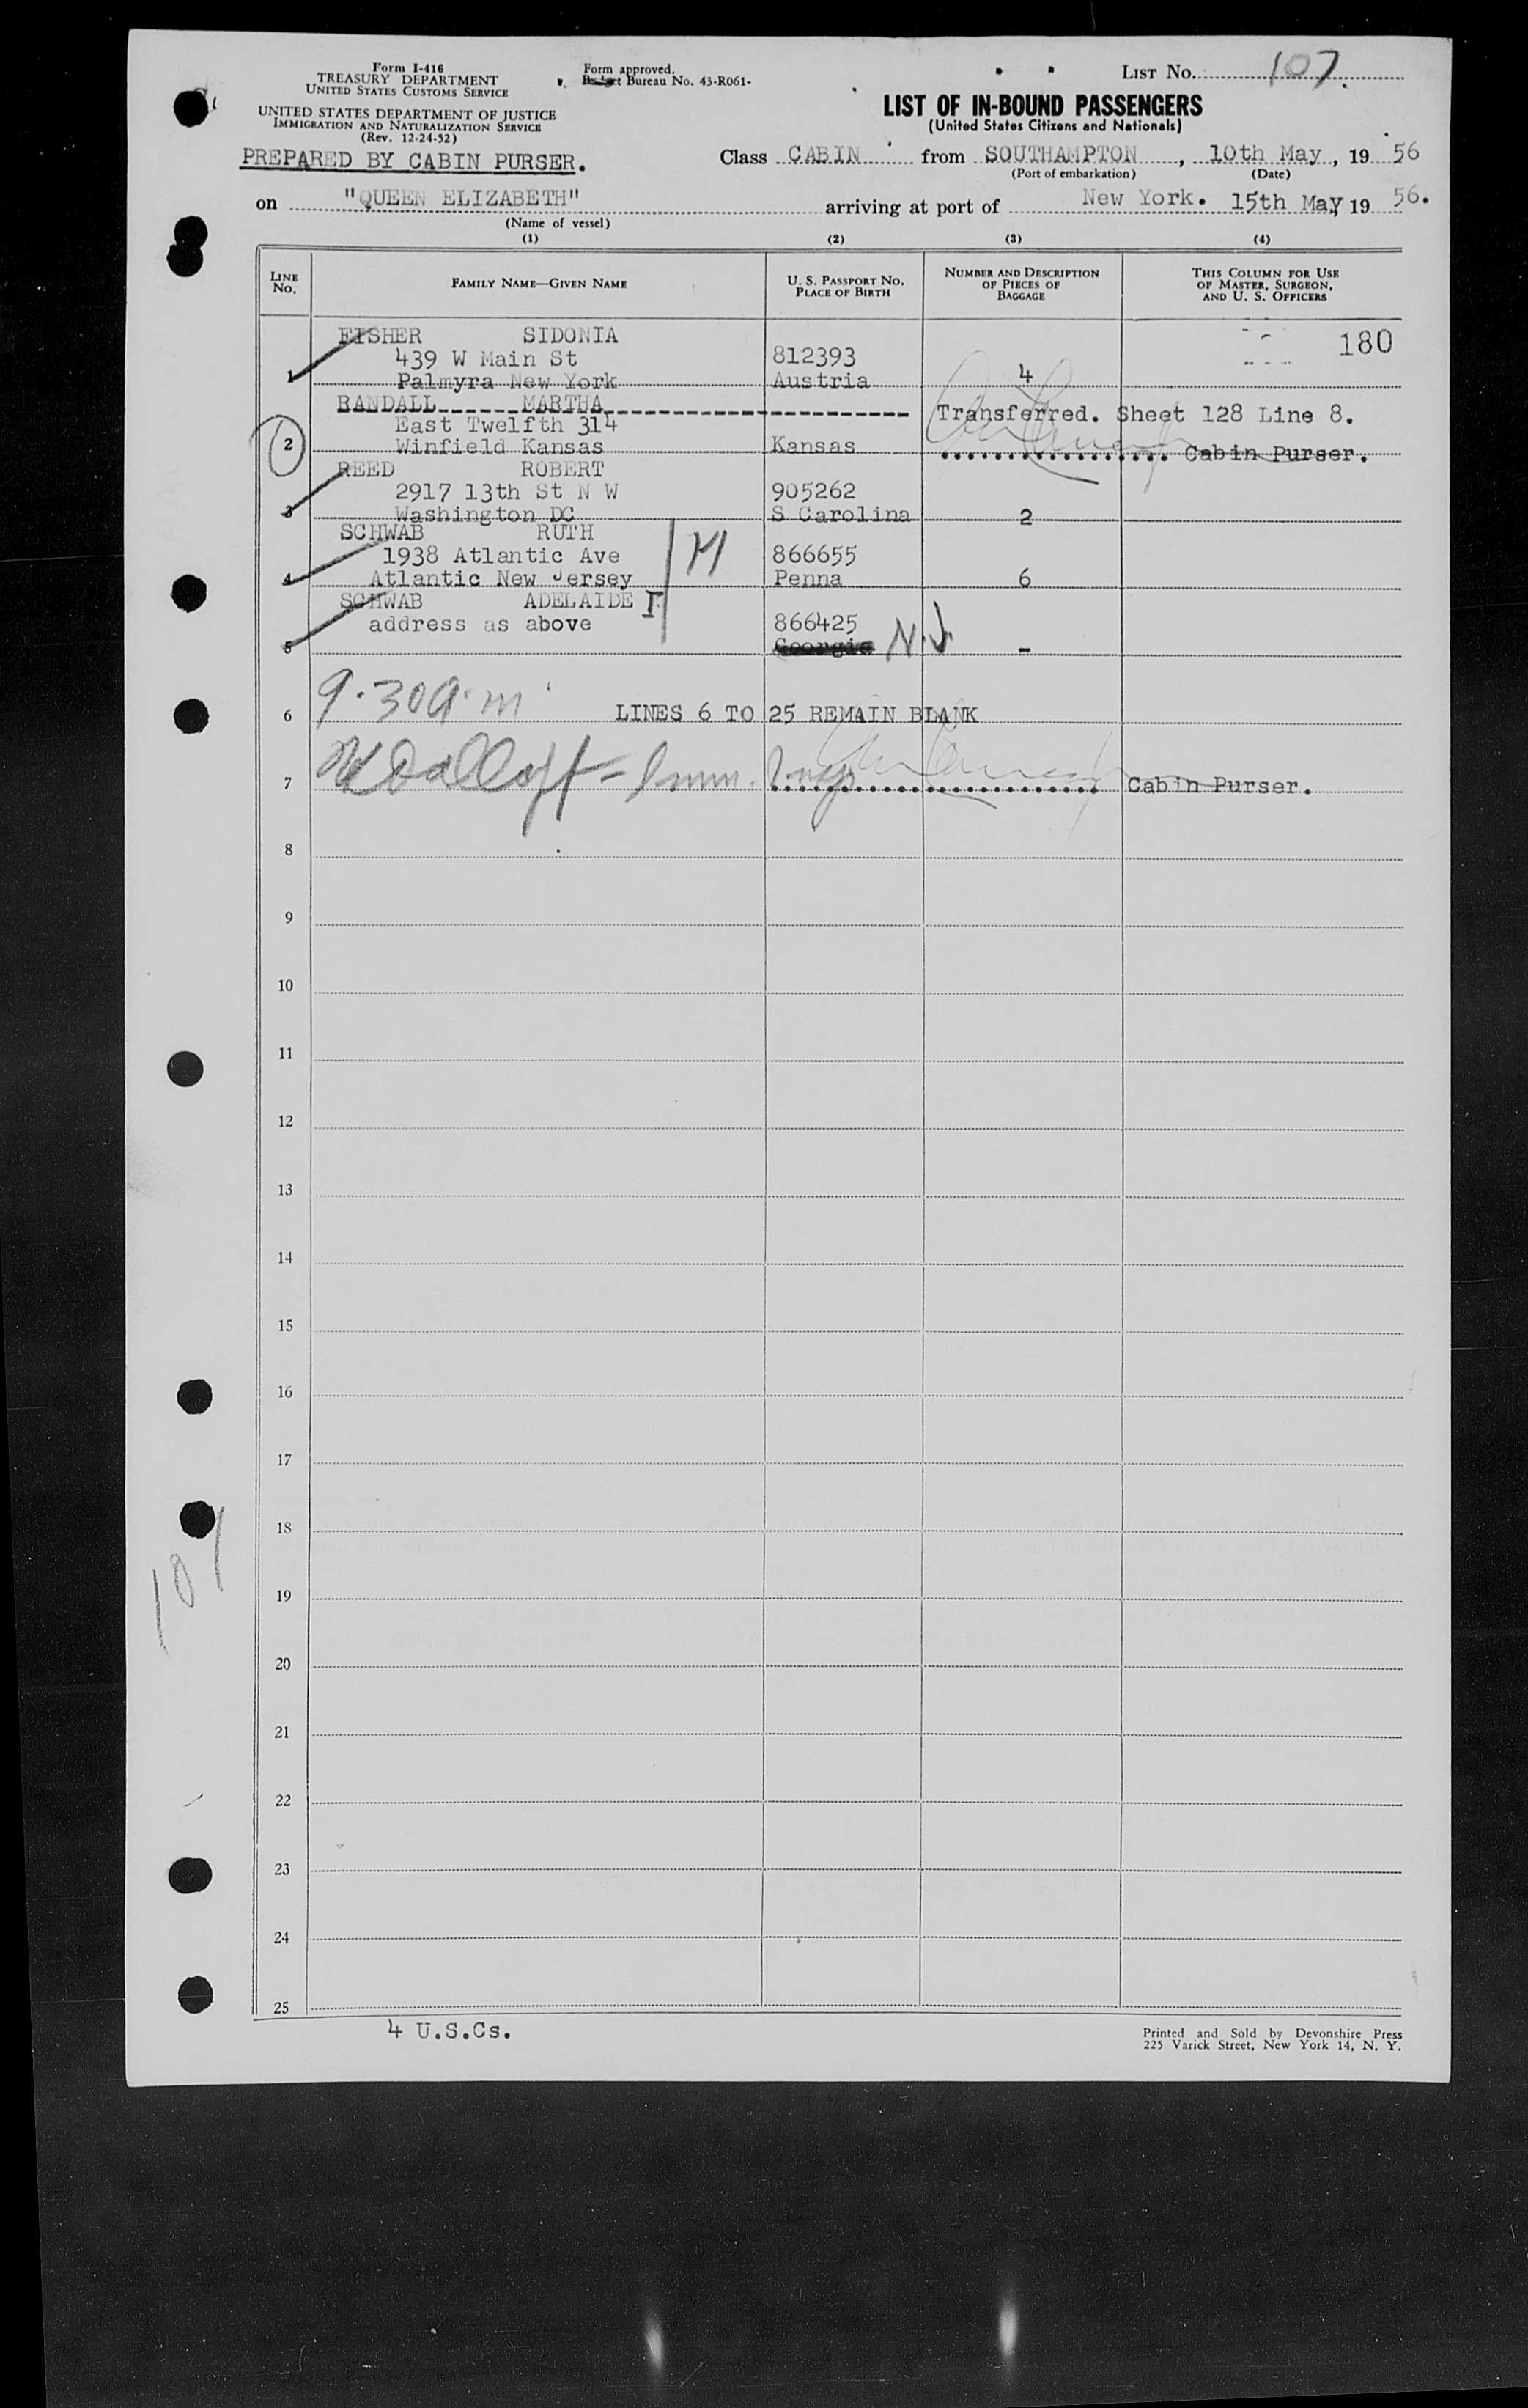 Form I-416
TREASURY DEPARTMENT
UNITED STATES CUSTOMS SERVICE
UNITED STATES DEPARTMENT OF JUSTICE
IMMIGRATION AND NATURALIZATION SERVICE
(Rev. 12-24-52)
PREPARED BY CABIN PURSER.
Form approved.
Budget Bureau No. 43-R061-
LIST No. 107.
LIST OF IN-BOUND PASSENGERS
(United States Citizens and Nationals)
Class CABIN from SOUTHAMPTON, 10th May, 19 56
(Port of embarkation) (Date)
on "QUEEN ELIZABETH" arriving at port of New York. 15th May, 19 56.
(Name of vessel)
(1) (2) (3) (4)
LINE No. FAMILY NAME—GIVEN NAME U. S. PASSPORT NO. PLACE OF BIRTH NUMBER AND DESCRIPTION OF PIECES OF BAGGAGE THIS COLUMN FOR USE OF MASTER, SURGEON, AND U. S. OFFICERS
SIDONIA 180
439 W Main St 812393
1 Palmyra New York Austria 4
RANDALL MARTHA Transferred. Sheet 128 Line 8.
East Twelfth 314
2 Winfield Kansas Kansas Cabin Purser.
REED ROBERT
2917 13th St N W 905262
3 Washington DC S Carolina 2
SCHWAB RUTH M
1938 Atlantic Ave 866655
4 Atlantic New Jersey Penna 6
SCHWAB ADELAIDE I
address as above 866425
5 Georgia N.J. -
9.30 a.m
6 LINES 6 TO 25 REMAIN BLANK
7 Cabin Purser.
8
9
10
11
12
13
14
15
16
17
18
19
20
21
22
23
24
25
4 U.S.Cs.
Printed and Sold by Devonshire Press
225 Varick Street, New York 14, N. Y.
107